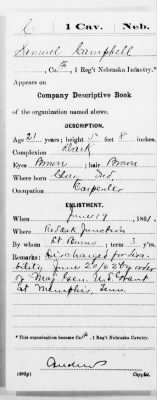 C 1 Cav. Neb.
Samuel Campbell
, Co. , 1 Reg't Nebraska Infantry.*
Appears on
Company Descriptive Book
of the organization named above.
DESCRIPTION.
Age 21 years; height 5 feet 8 inches.
Complexion Dark
Eyes Brown ; hair Brown
Where born Clay, Ind
Occupation Carpenter
ENLISTMENT.
When June 19 , 186 .
Where Junction
By whom Lt Burns ; term 3 y'rs.
Remarks: Discharged for disa-
bility June 20/62 by order
of Maj Gen. U.S. Grant
at Memphis, Tenn.
*This organization became Co. , 1 Reg't Nebraska Cavalry.
Andrus